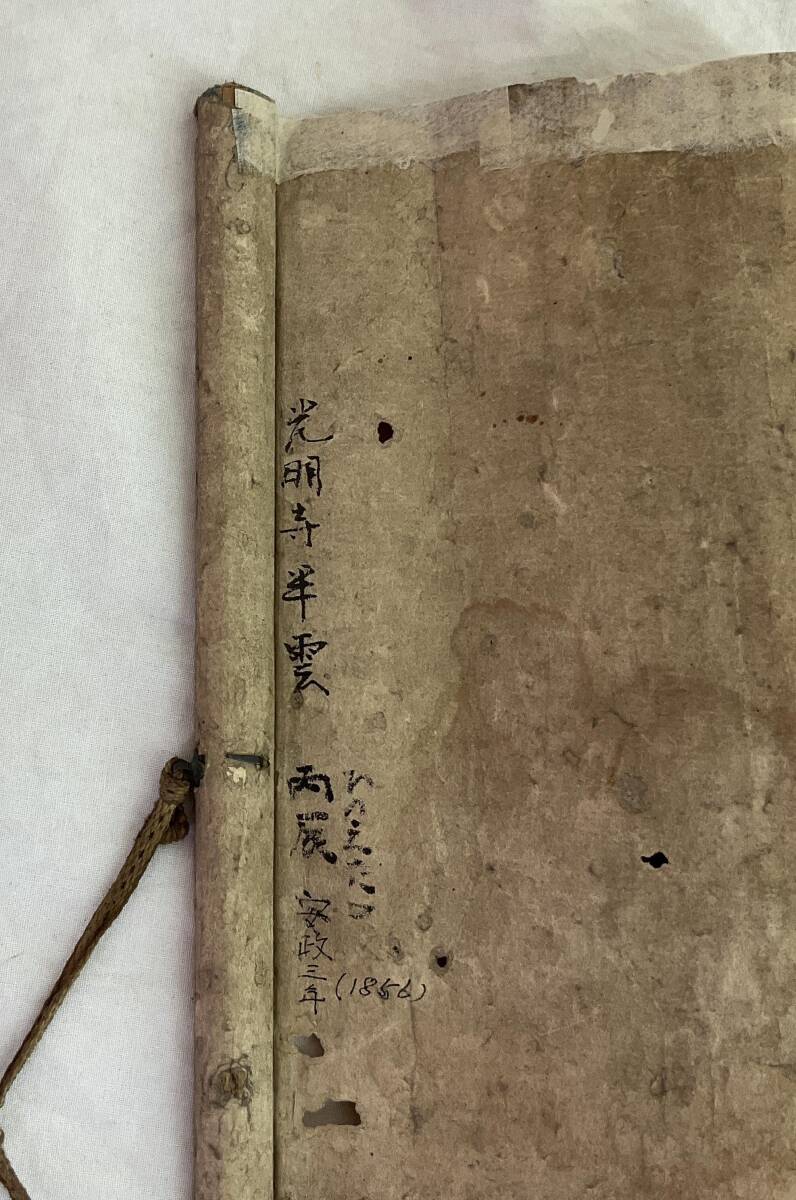 光明寺半雲 丙辰 安政三年(1856)
ひのえたつ